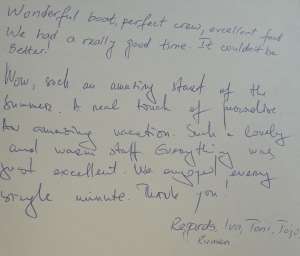 Wonderful boat, perfect crew, excellent food
We had a really good time. It couldn't be
better!
Wow, such an amazing start of the
summer. A real touch of paradise.
An amazing vacation. Such a lovely
and warm staff. Everything was
just excellent. We enjoyed every
single minute. Thank you!
Regards, Iva, Toni,
Rumen